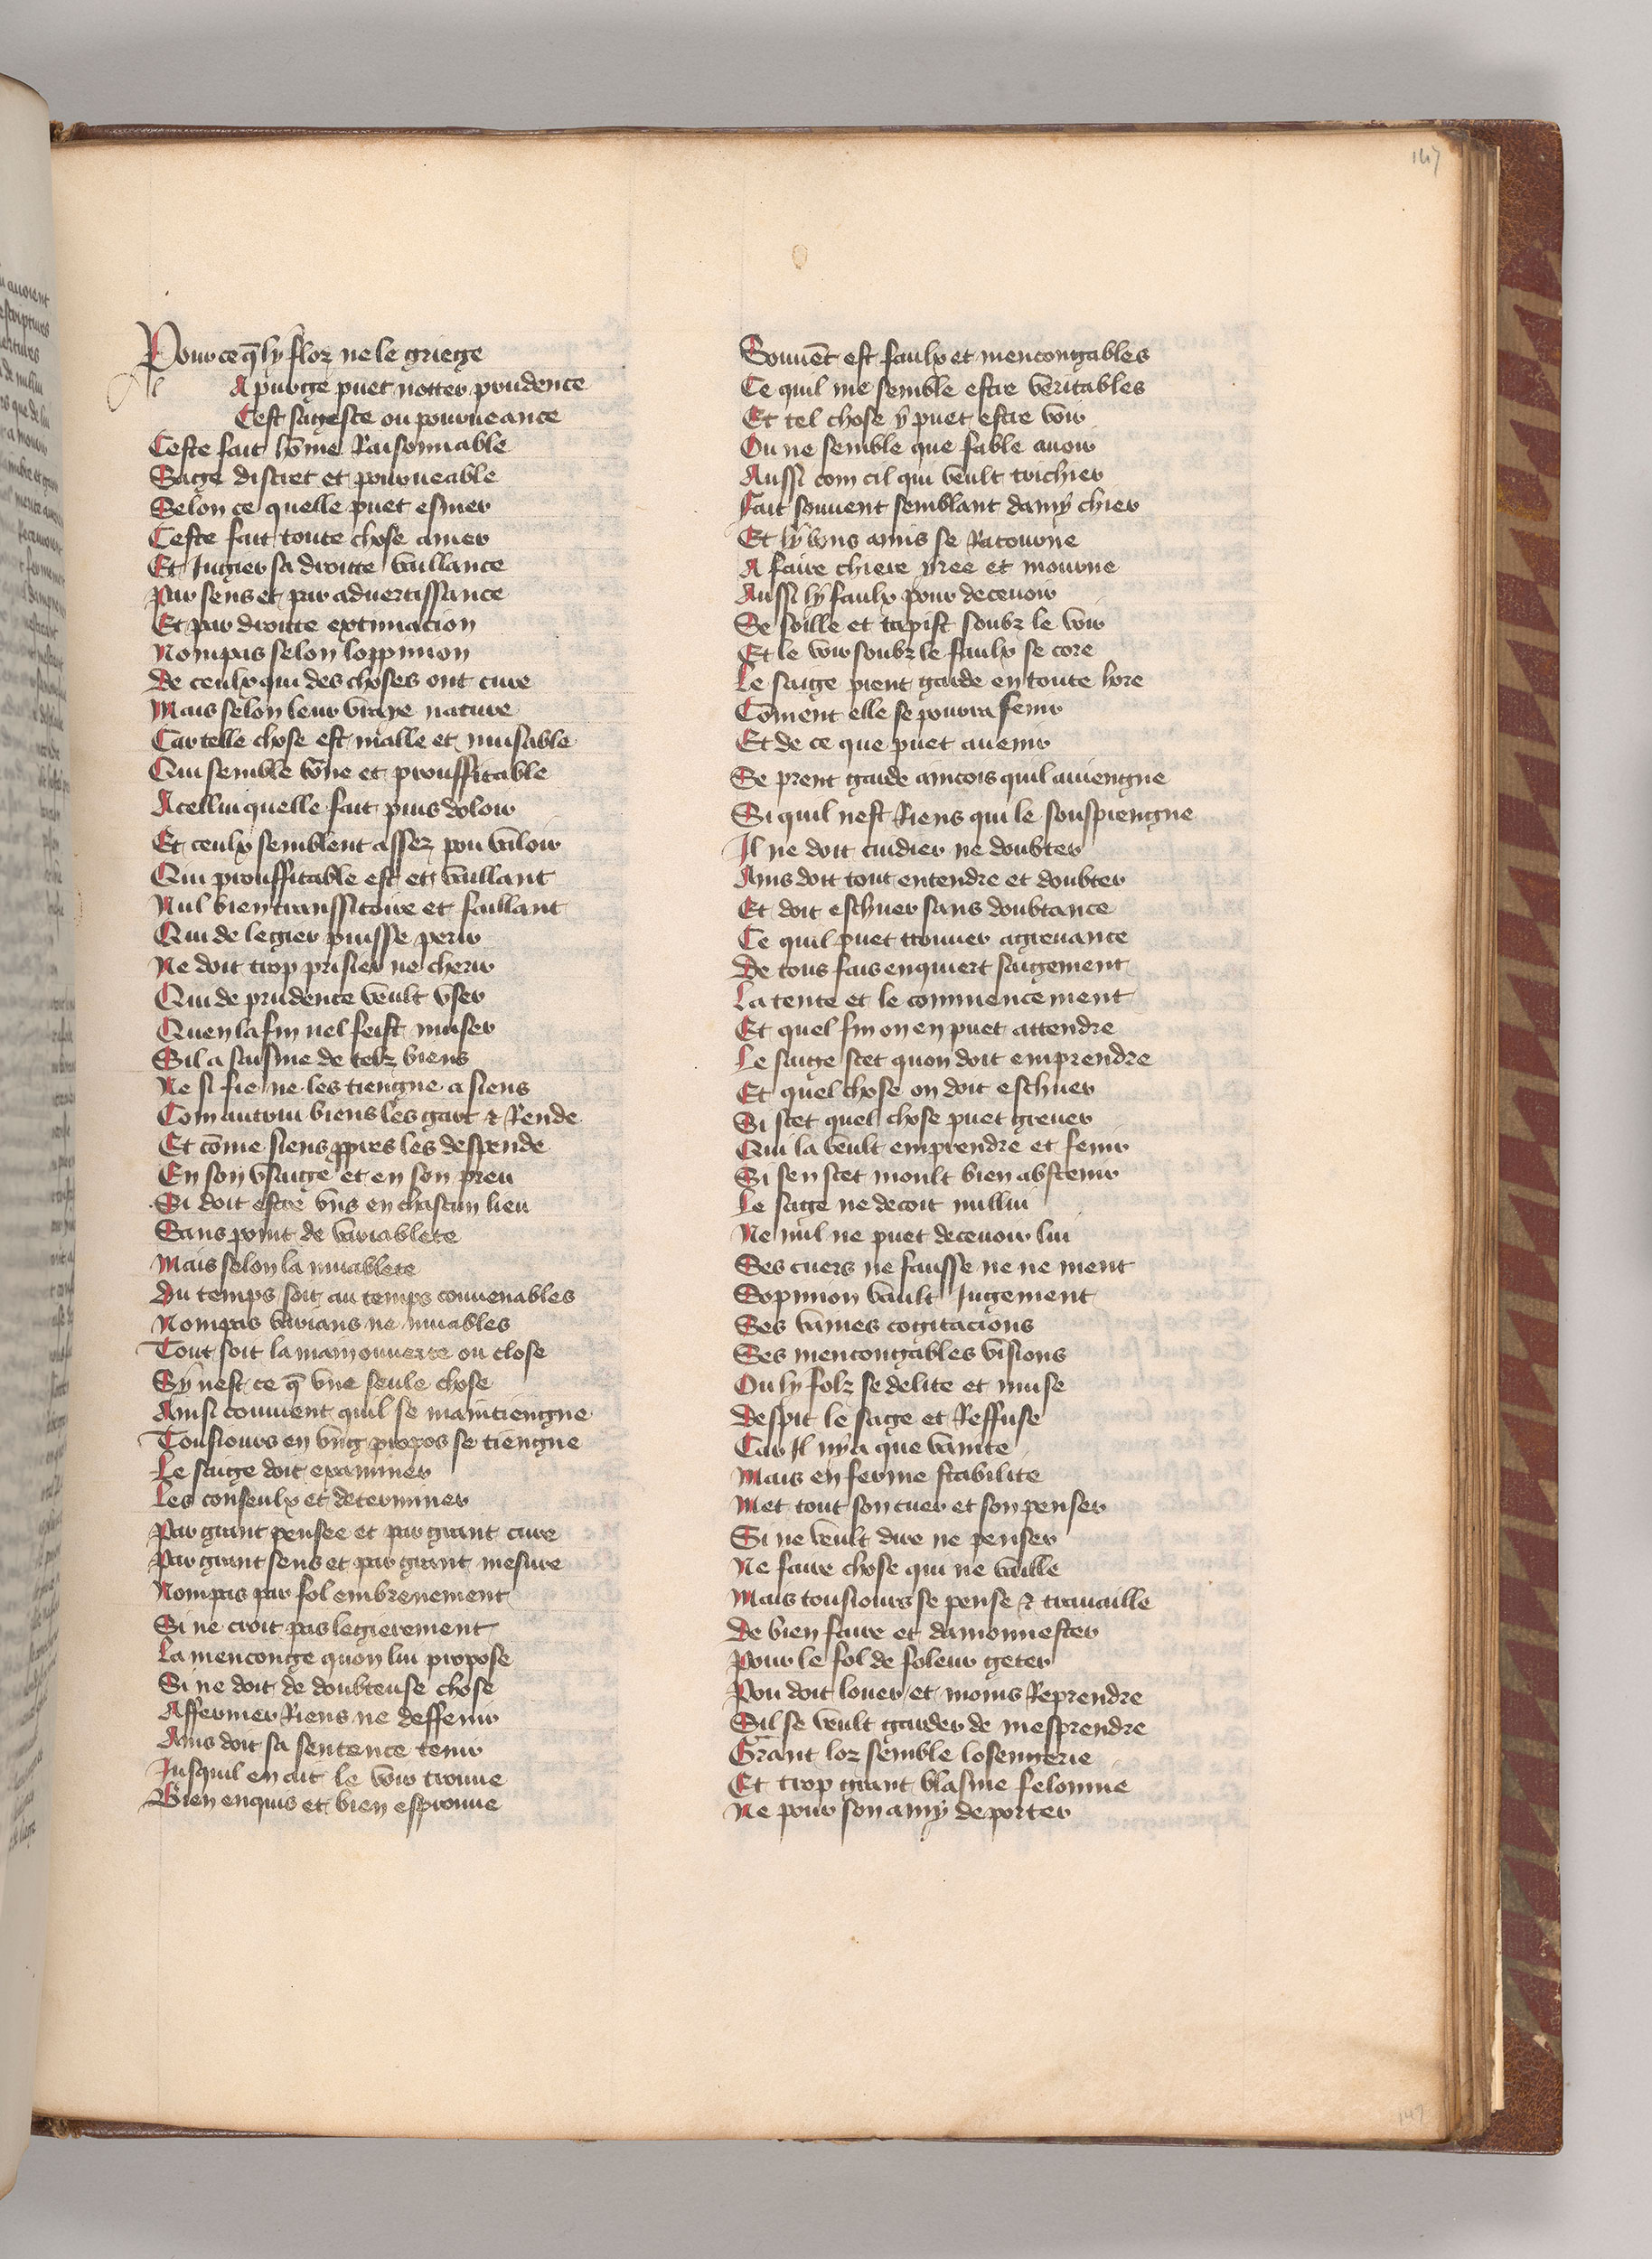 147
Pour ce q̄ ly floz ne le griege
A purge puet notter prudence
Cest sagesce ou pourueance
Ceste fait hōme Raisonnable
Sage discret et pourueable
Selon ce quelle puet esmer
Ceste fait toute chose amer
Et Jugier sa droitte vaillance
Par sens et par aduertissance
Et par droitte extimacion
Nompas selon loppinion
De ceulx qui des choses ont cure
Mais selon leur vraye nature
Car telle chose est malle et nuisable
Qui semble bōne et prouffitable
A cellui quelle fait puis doloir
Et ceulx semblent assez pou valoir
Qui prouffitable est et vaillant
Nul bien transsitoire et faillant
Qui de legier puisse perir
Ne doit trop prisier ne cherir
Qui de prudence veult vser
Quen la fin nel feist muser
Sil a saisine de telz biens
Ne si fie ne les tiengne a siens
Com autrui biens les gart & Rende
Et cōme siens ppres les despende
En son vsaige et en son preu
Si doit estre vns en chascun lieu
Sans point de variablete
Mais selon la muablete
Du temps soit au temps conuenables
Nompas varians ne muables
Tout soit la main ouuerte ou close
Sy nest ce q̄ vne seule chose
Ainsi conuient quil se maintiengne
Tousiours en vng propos se tiengne
Le saige doit examiner
Les conseulx et determiner
Par grant pensee et par grant cure
Par grant sens et par grant mesure
Nompas par fol embrenement
Si ne croit pas legierement
La menconge quon lui propose
Si ne doit de doubteuse chose
Affermer Riens ne deffenir
Ains doit sa sentence tenir
Jusquil en ait le voir trouue
Bien enquis et bien esprouue
Souuēt est faulx et mencongables
Ce quil me semble estre veritables
Et tel chose y puet estre voir
Ou ne semble que fable auoir
Aussi com cil qui veult trichier
Fait souuent semblant damy chier
Et ly bons amis se Ratourne
A faire chiere yree et mourne
Aussi ly faulx pour deceuoir
Se soille et tapist soubz le voir
Et le voir soubz le faulx se core
Le saige prent garde en toute hore
Cōment elle se pourra fenir
Et de ce que puet auenir
Se prent garde aincois quil auiengne
Si quil nest Riens qui le souspreingne
Il ne doit cuidier ne doubter
Ains doit tout entendre et doubter
Et doit eschuer sans doubtance
Ce quil puet trouuer agreuance
De tous fais enquiert saigement
La tente et le commencement
Et quel fin on en puet attendre
Le saige scet quon doit emprendre
Et quel chose on doit eschuer
Si scet quel chose puet greuer
Qui la veult emprendre et fenir
Si sen scet moult bien abstenir
Le sage ne decoit nullui
Ne nul ne puet deceuoir lui
Ses cuers ne fausse ne ne ment
Sopinion vault Jugement
Ses vaines cogitacions
Ses mencongables visions
Ou ly folz se delite et muse
Despit le sage et Reffuse
Car Il ny a que vanite
Mais en ferme stabilite
Met tout son cuer et son penser
Si ne veult dire ne penser
Ne faire chose qui ne vaille
Mais tousiours se pense & trauaille
De bien faire et damonnester
Pour le fol de foleur geter
Pou doit louer et moins Reprendre
Sil se veult garder de mesprendre
Grant loz semble losengerie
Et trop grant blasme felonnie
Ne pour son amy deporter
147